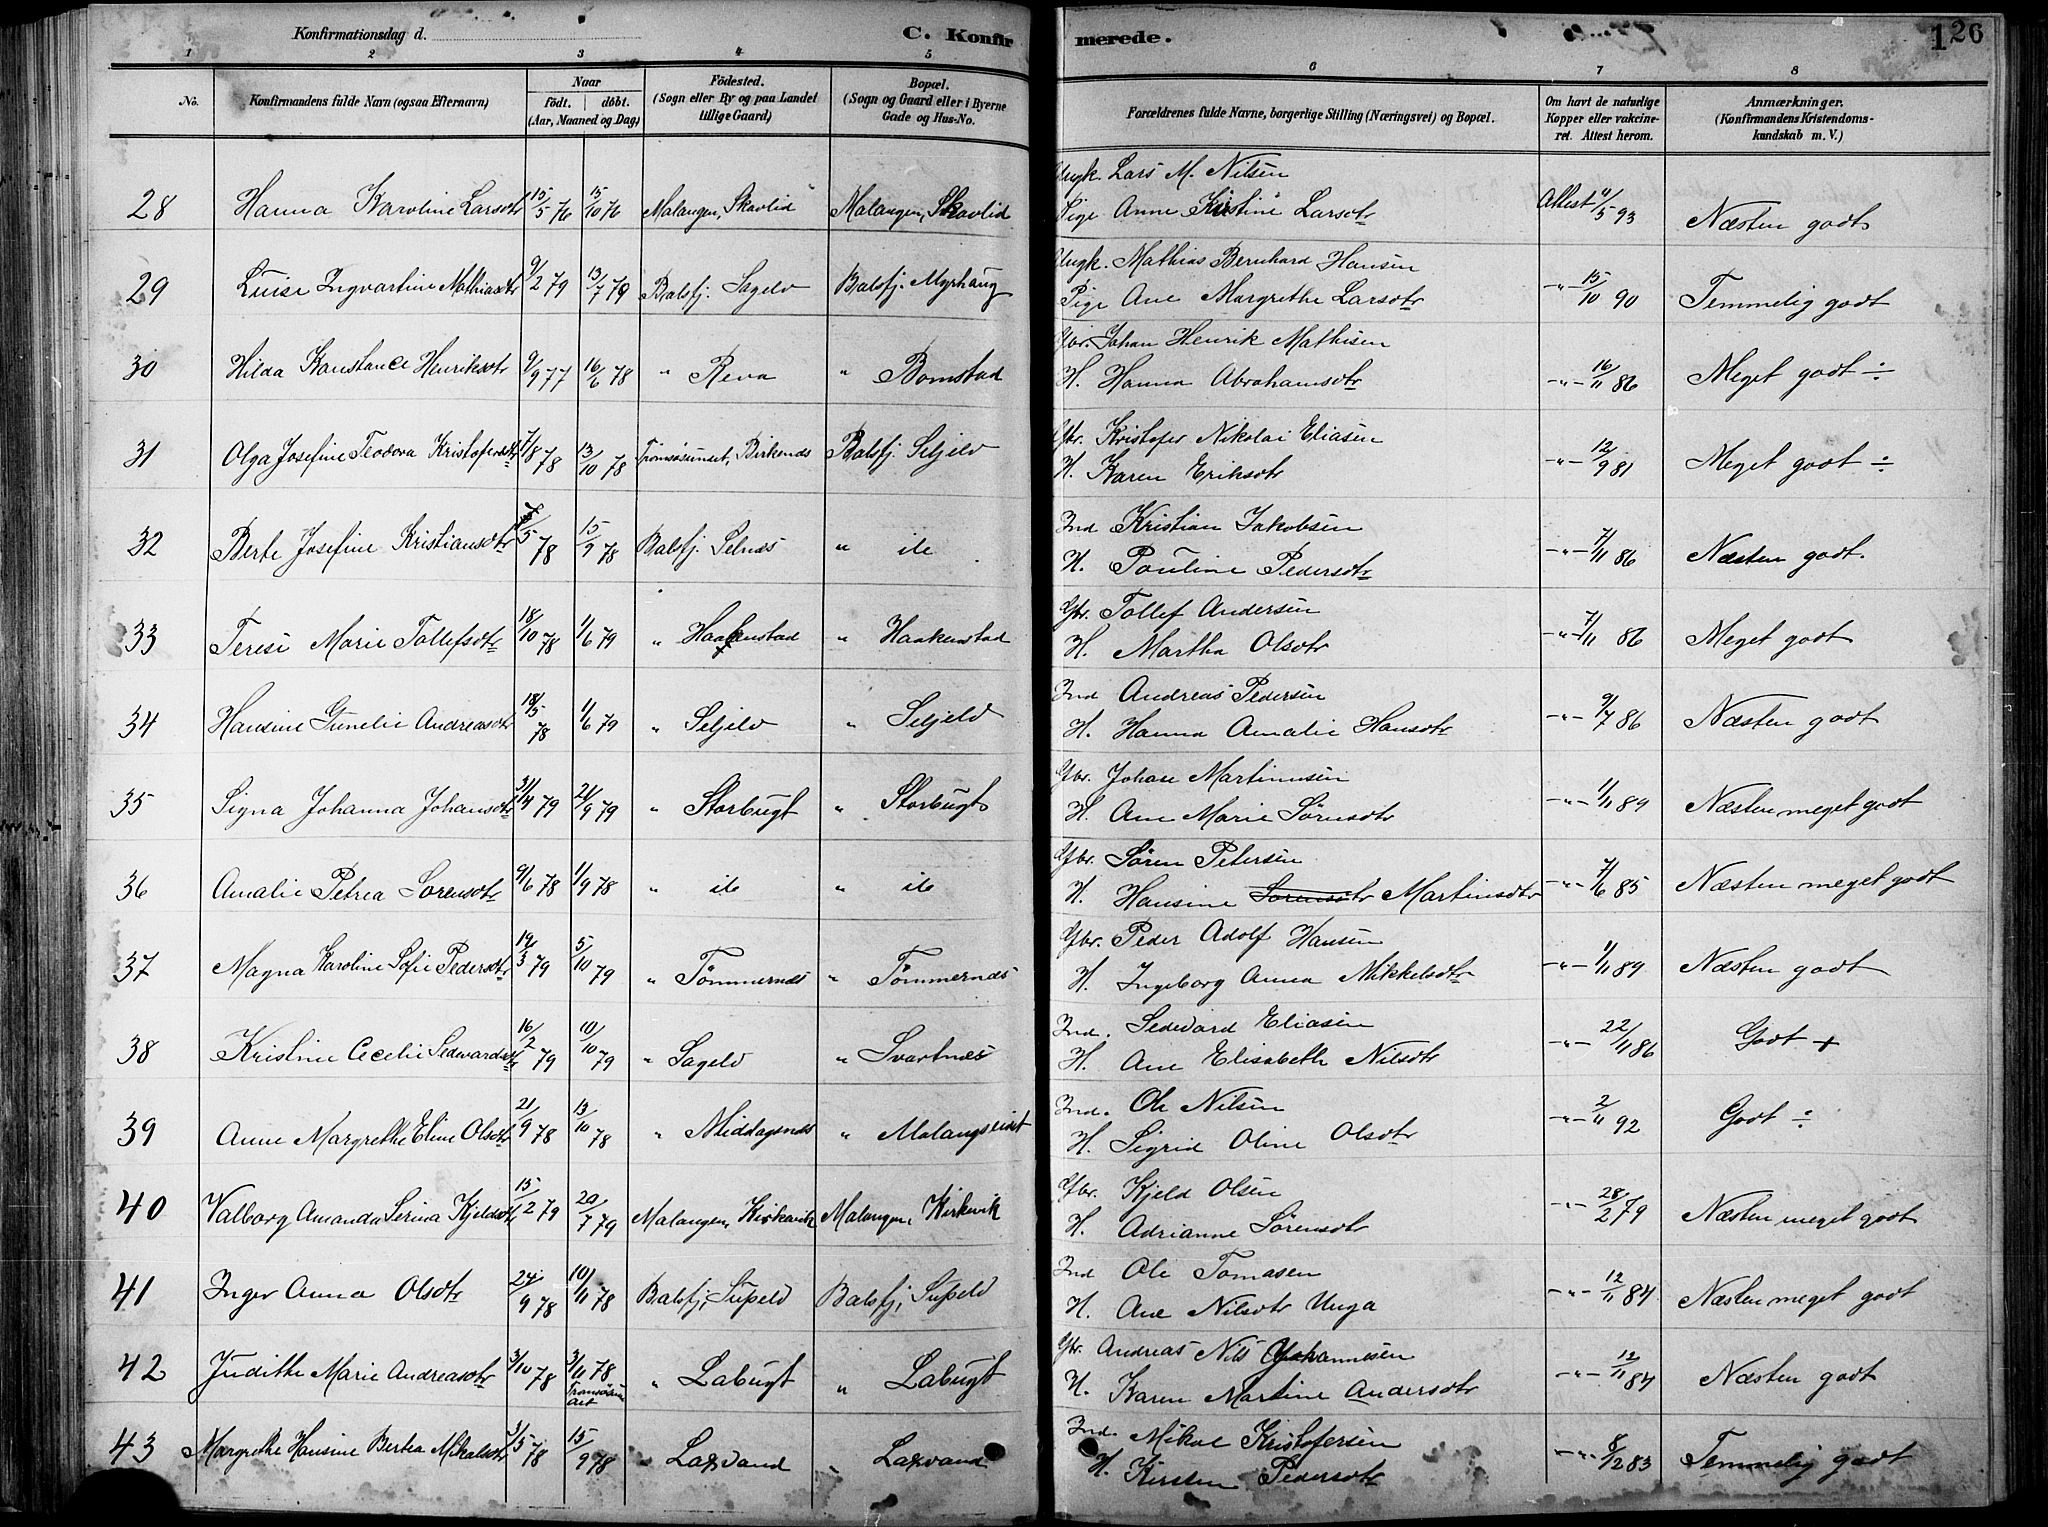 Konfirmationsdag d. C. Konfirmerede. 126
1 2 3 4 5 6 7 8
No. Konfirmandens fulde Navn (ogsaa Efternavn) Naar født. døbt. (Aar, Maaned og Dag) Födested. (Sogn eller By og paa Landet tillige Gaard) Bopæl. (Sogn og Gaard eller i Byerne Gade og Hus-No. Forældrenes fulde Navne, borgerlige Stilling (Næringsvei) og Bopæl. Om havt de naturlige Kopper eller vakcineret. Attest herom. Anmærkninger. (Konfirmandens Kristendomskundskab m. V.)
Ungk. Lars M. Nilsen
28 Hanna Karoline Larsdtr 15/5 76 15/10 76 Malangen, Skavlid Malangen, Skavlid Pige Anne Kirstine Larsdtr Attest 4/5 93 Næsten godt
Ungk. Mathias Bernhard Hansen
29 Luise Ingvartine Mathiasdtr 9/2 79 13/7 79 Balsfj. Sagelv Balsfj. Myrhaug Pige Ane Margrethe Larsdtr -"- 15/10 90 Temmelig godt
Gbr. Johan Henrik Mathisen
30 Hilda Konstance Henriksdtr 9/9 77 16/6 78 " Reva " Bomstad H. Hanna Abrahamsdtr -"- 16/11 86 Meget godt ÷
Gbr. Kristofer Nikolai Eliasen
31 Olga Josefine Teodora Kristofersdtr 7/8 78 13/10 78 Tromsøsundet, Birkenes Balsfj. Seljelv H. Karen Eriksdtr -"- 12/9 81 Meget godt ÷
Ind Kristian Jakobsen
32 Berte Josefine Kristiansdtr /5 78 15/9 78 Balsfj. Selnæs " ib H. Pauline Pedersdtr -"- 7/11 86 Næsten godt.
Gbr. Tollef Andersen
33 Terese Marie Tollefsdtr 18/10 78 1/6 79 " Haakenstad " Haakenstad H. Martha Olsdtr -"- 7/11 86 Meget godt
Ind Andreas Pedersen
34 Hansine Gunelie Andreasdtr 18/5 78 1/6 79 " Seljelv " Seljelv H. Hanna Amalie Hansdtr -"- 9/7 86 Næsten godt
Gbr. Johan Martinusen
35 Signa Johanna Johansdtr 79 21/9 79 " Storbugt " Storbugt H. Ane Marie Sørensdtr -"- 1/11 89 Næsten meget godt
Gbr. Søren Petersen
36 Amalie Petrea Sørensdtr 9/6 78 1/9 78 " ib " ib H. Hansine Sørensdtr Martinsdtr -"- 7/6 85 Næsten meget godt
Gbr. Peder Adolf Hansen
37 Magna Karoline Sofie Pedersdtr 19/3 79 5/10 79 " Tømmernæs " Tømmernæs H. Ingeborg Anna Mikkelsdtr -"- 1/11 89 Næsten godt
Ind. Sedevard Eliasen
38 Kristine Cecelie Sedevardsdtr 16/2 79 10/10 79 " Sagelv " Svartnæs H. Ane Elisabeth Nilsdtr -"- 22/11 86 Godt +
Ind. Ole Nilsen
39 Anne Margrethe Eline Olsdtr 21/9 78 13/10 78 " Middagsnæs " Malangseidet H. Sigrid Oline Olsdtr -"- 2/11 92 Godt ÷
Gbr. Kjeld Olsen
40 Valborg Amanda Serina Kjeldsdtr 15/2 79 20/7 79 Malangen, Kirkevik Malangen, Kirkevik H. Adrianne Sørensdtr -"- 28/2 79 Næsten meget godt
Ind Ole Tomasen
41 Inger Anna Olsdtr 24/9 78 10/11 78 Balsfj, Supelv Balsfj, Supelv H. Ane Nilsdtr Unga -"- 12/11 84 Næsten meget godt
Gbr. Andreas Nils Johannesen
42 Judithe Marie Andreasdtr 3/10 78 3/11 78 Tromsøsundet " Labugt " Labugt H. Karen Martine Andersdtr -"- 12/11 84 Næsten godt
Ind. Mikal Kristofersen
43 Margrethe Hansine Bertea Mikalsdtr 3/5 78 15/9 78 " Laxvand " Laxvand H. Kirsten Pedersdtr -"- 8/2 83 Temmelig godt